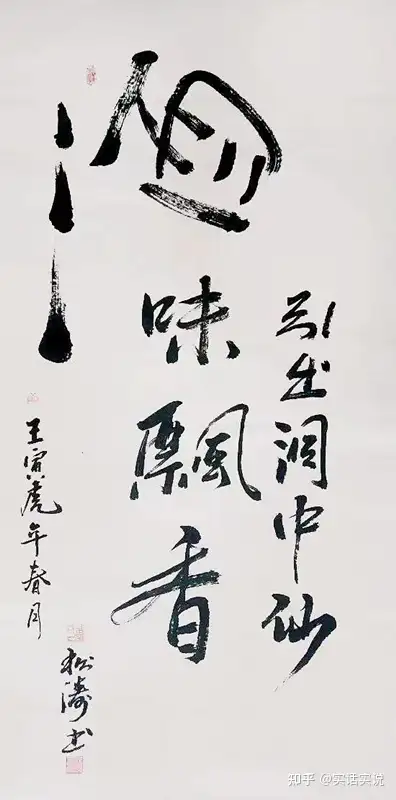 酒味飄香
引出洞中仙
壬寅虎年春月
松濤书
知乎 @实话实说